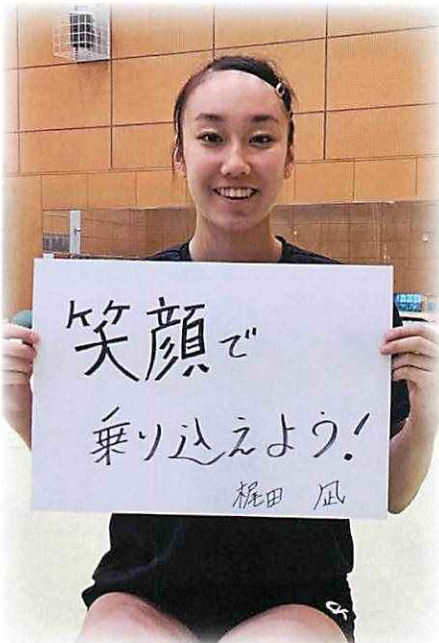 笑顔で
乗り込えよう!
梶田 凪
CK